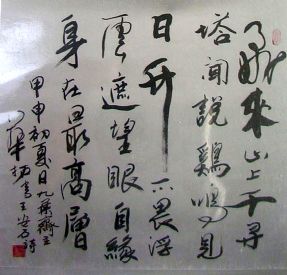 飛來山上千尋
塔聞說鷄鳴見
日升不畏浮
雲遮望眼自緣
身在最高層
甲申初夏日九華齋主
書王安石詩